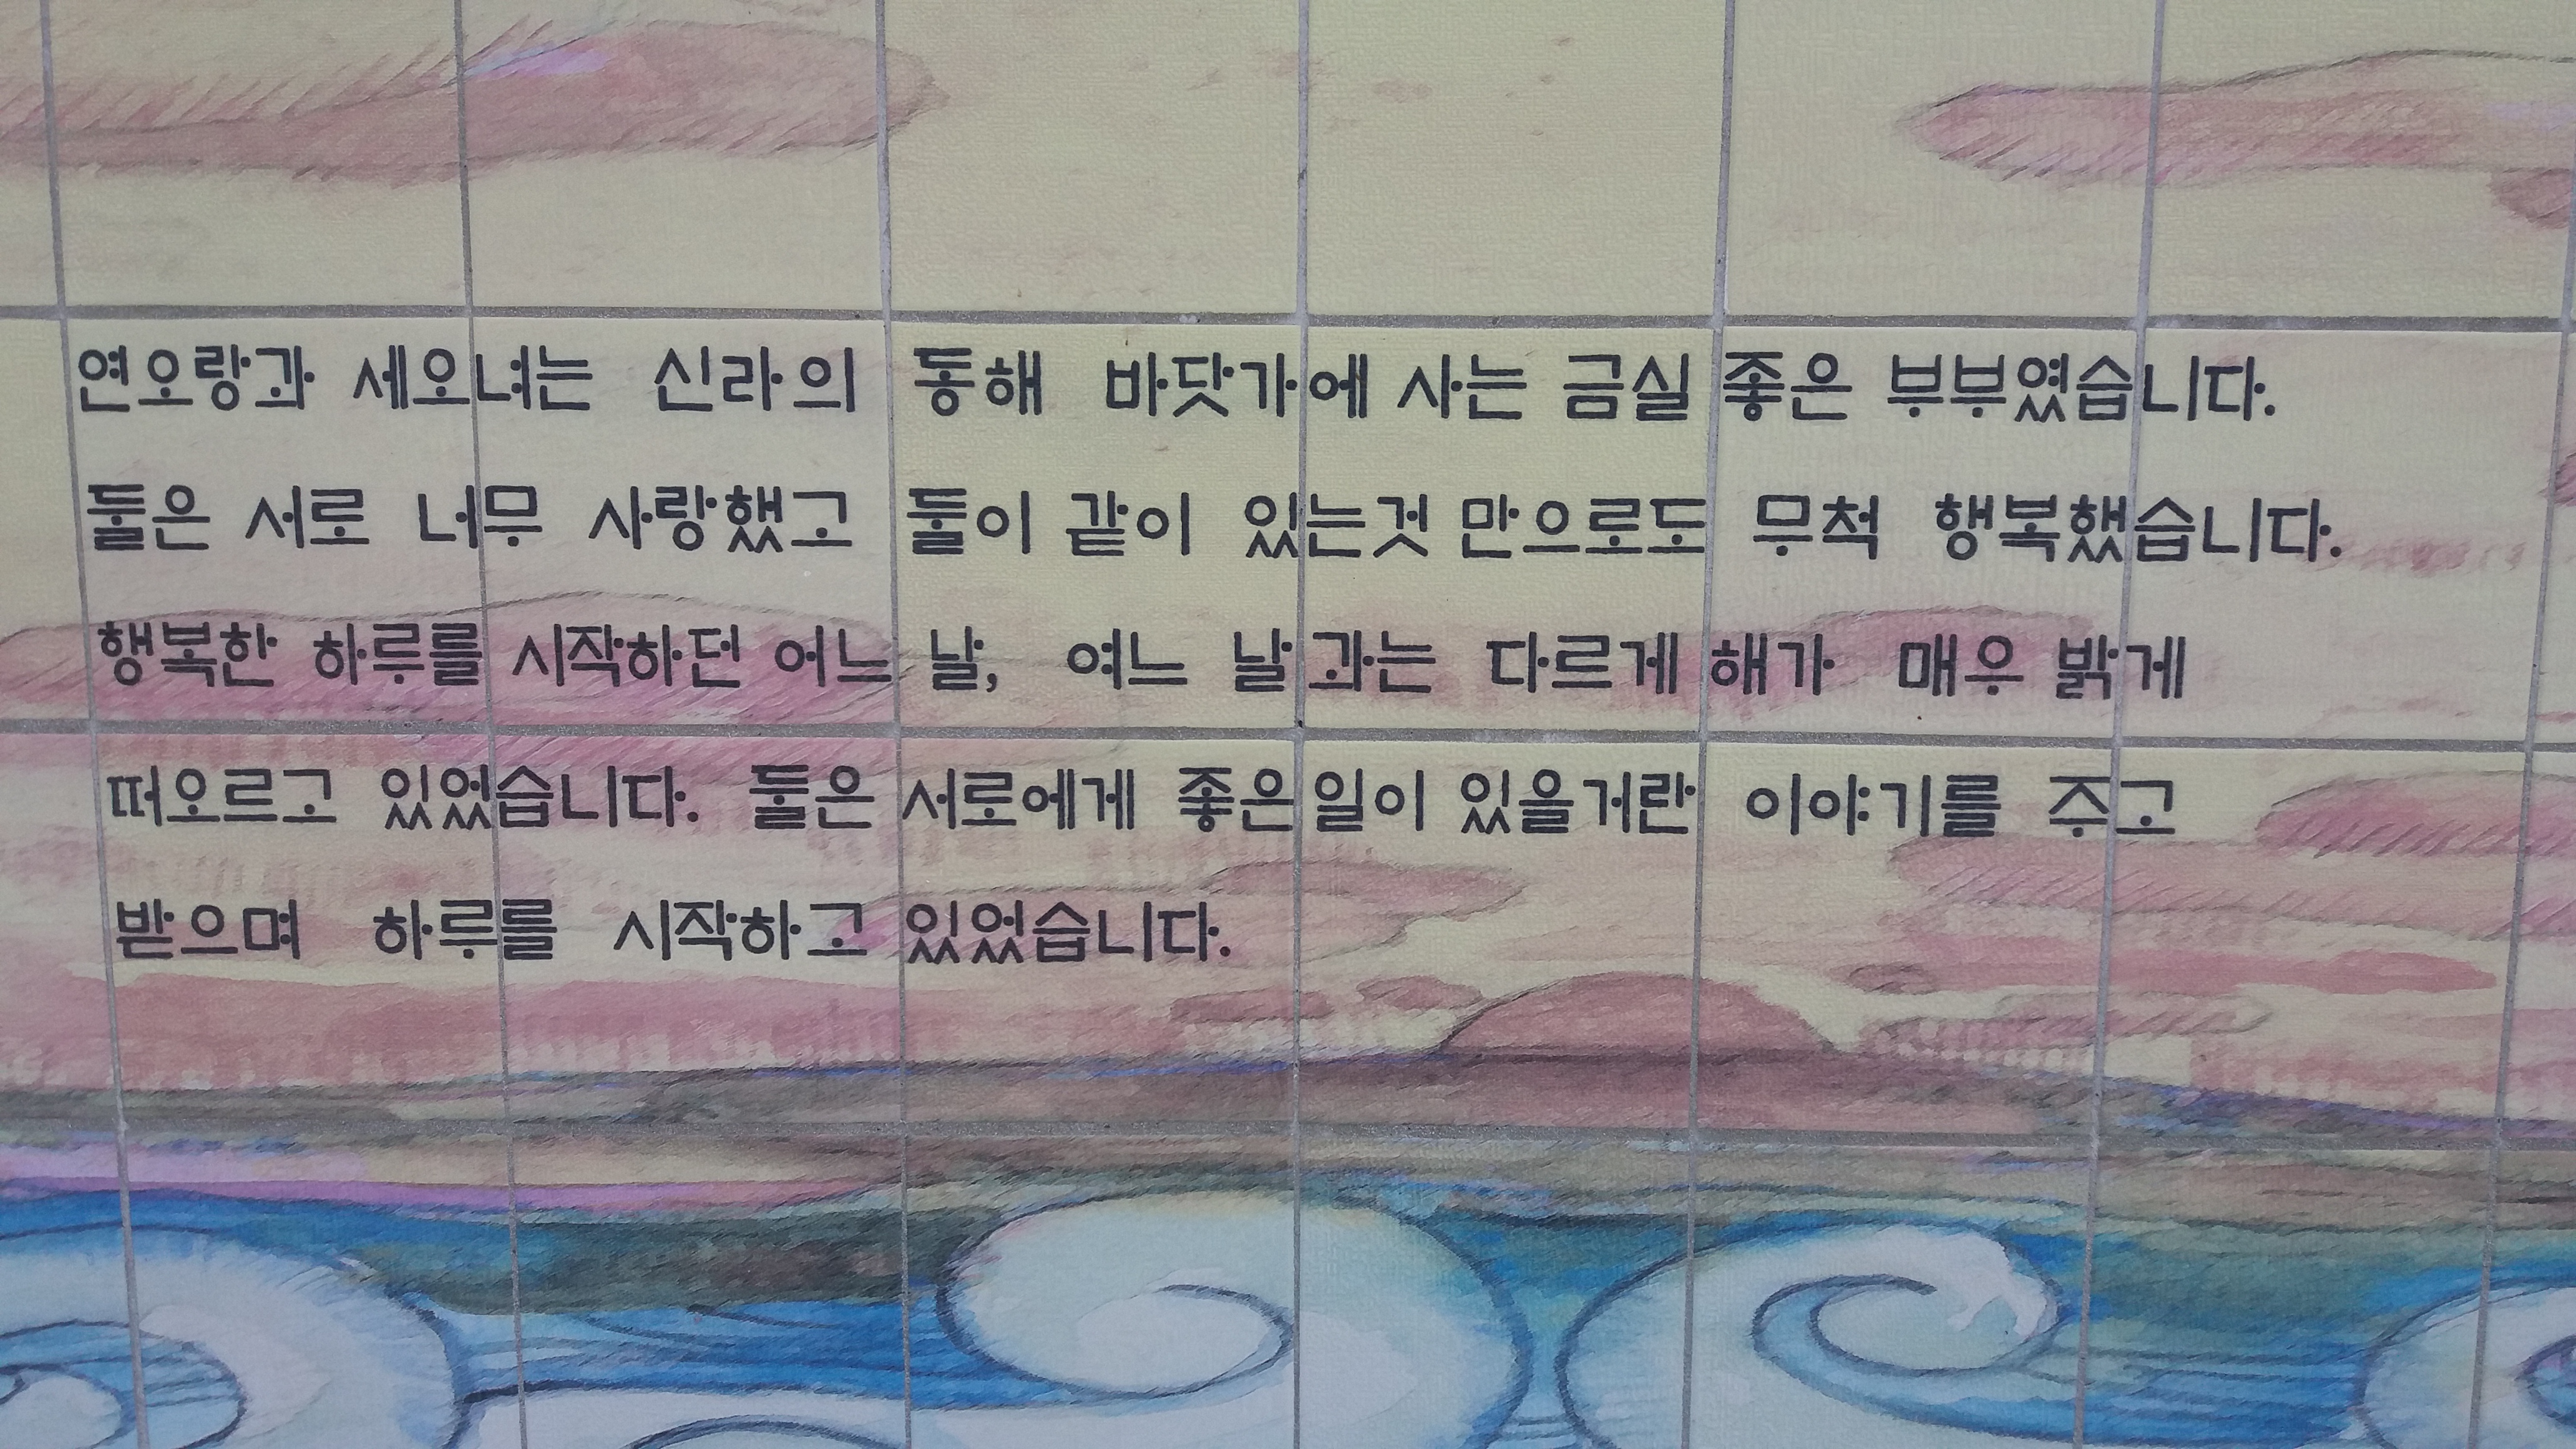 연오랑과 세오녀는 신라의 동해 바닷가에 사는 금실 좋은 부부였습니다.
둘은 서로 너무 사랑했고 둘이 같이 있는것 만으로도 무척 행복했습니다.
행복한 하루를 시작하던 어느 날, 여느 날과는 다르게 해가 매우 밝게
떠오르고 있었습니다. 둘은 서로에게 좋은일이 있을거란 이야기를 주고
받으며 하루를 시작하고 있었습니다.